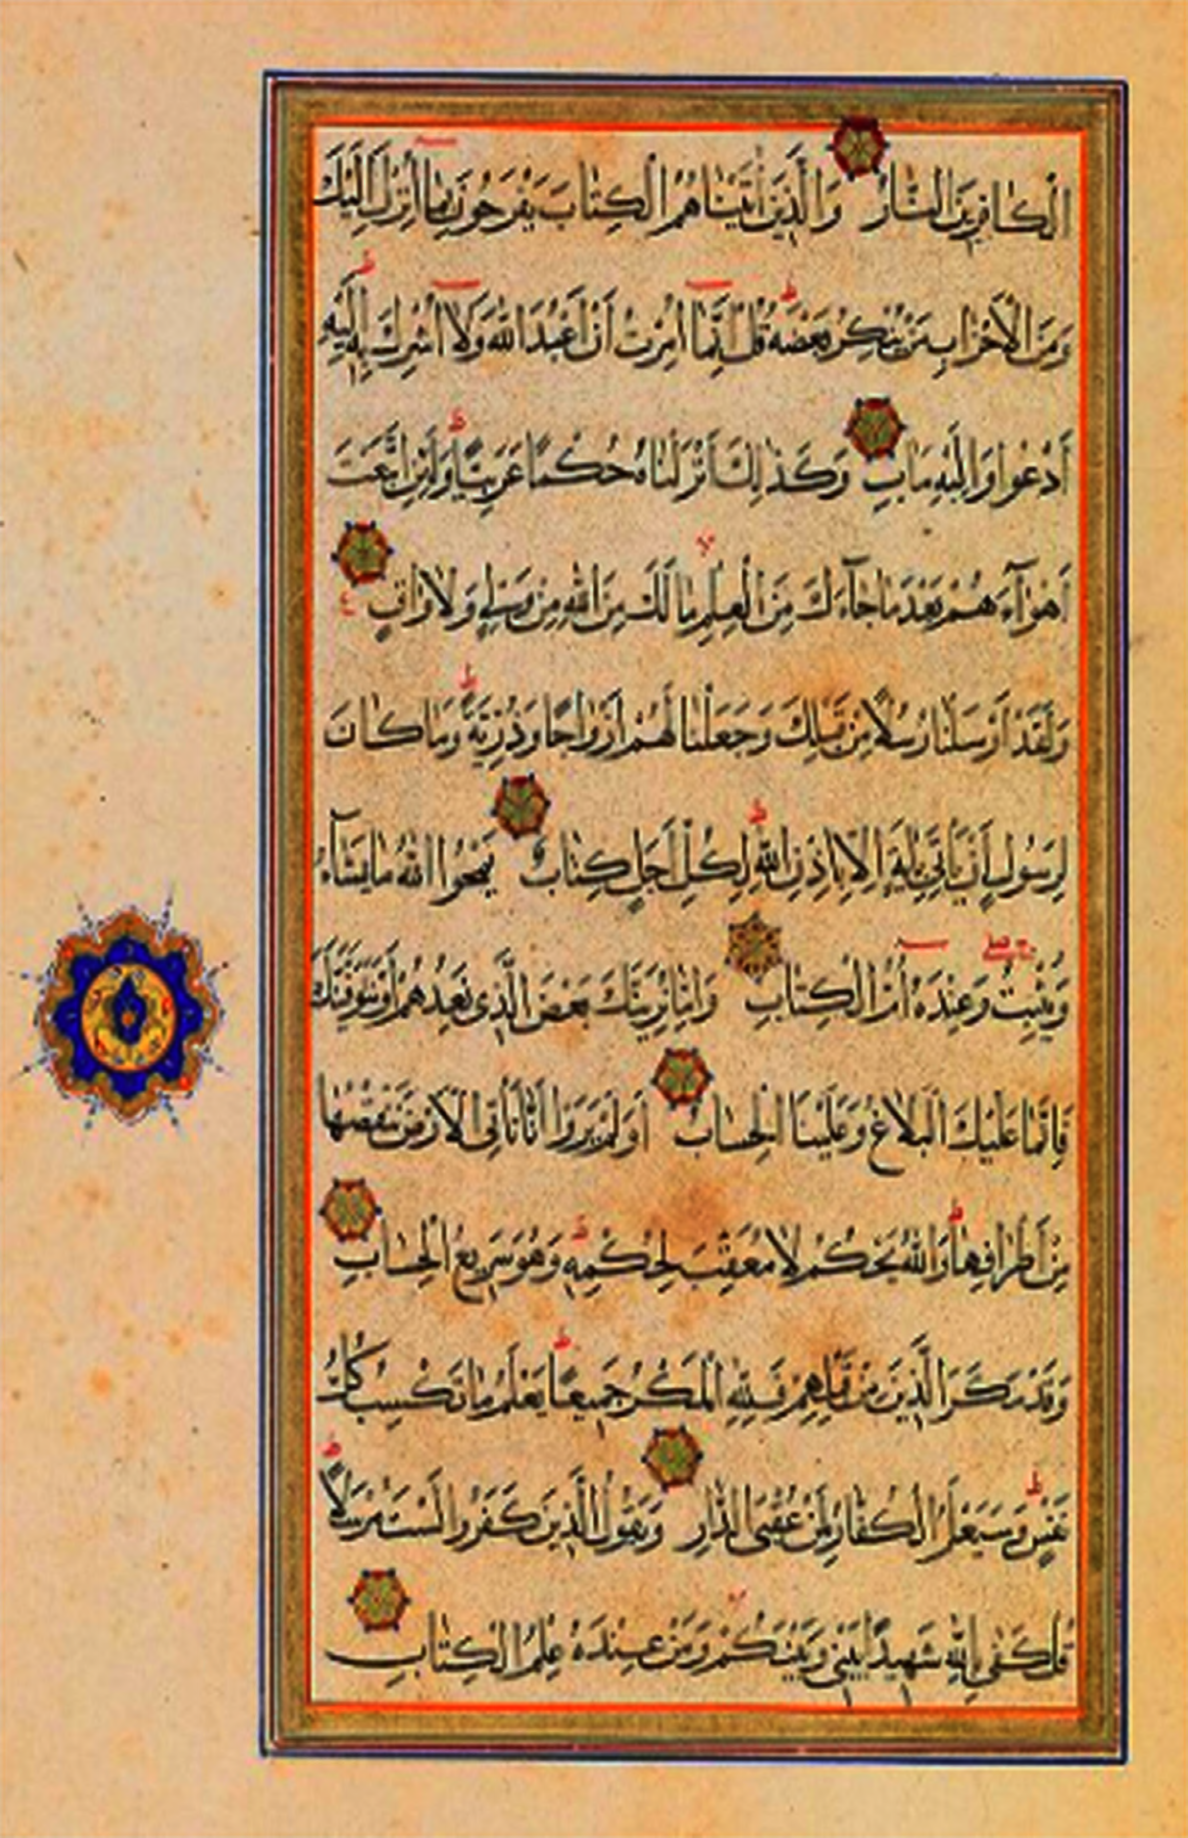 الْكَافِرِينَ النَّارُ وَالَّذِينَ آتَيْنَاهُمُ الْكِتَابَ يَفْرَحُونَ بِمَا أُنْزِلَ إِلَيْكَ
وَمِنَ الْأَحْزَابِ مَنْ يُنْكِرُ بَعْضَهُ قُلْ إِنَّمَا أُمِرْتُ أَنْ أَعْبُدَ اللَّهَ وَلَا أُشْرِكَ بِهِ إِلَيْهِ
أَدْعُوا وَإِلَيْهِ مَآبِ وَكَذَلِكَ أَنْزَلْنَاهُ حُكْمًا عَرَبِيًّا وَلَئِنِ اتَّبَعْتَ
أَهْوَآءَهُمْ بَعْدَ مَا جَآءَكَ مِنَ الْعِلْمِ مَا لَكَ مِنَ اللَّهِ مِنْ وَلِيٍّ وَلَا وَاقٍ ع
وَلَقَدْ أَرْسَلْنَا رُسُلًا مِنْ قَبْلِكَ وَجَعَلْنَا لَهُمْ أَزْوَاجًا وَذُرِّيَّةً وَمَا كَانَ
لِرَسُولٍ أَنْ يَأْتِيَ بِآيَةٍ إِلَّا بِإِذْنِ اللَّهِ لِكُلِّ أَجَلٍ كِتَابٌ يَمْحُوا اللَّهُ مَا يَشَآءُ
وَيُثْبِتُ وَعِنْدَهُ أُمُّ الْكِتَابِ وَإِمَّا نُرِيَنَّكَ بَعْضَ الَّذِي نَعِدُهُمْ أَوْ نَتَوَفَّيَنَّكَ
فَإِنَّمَا عَلَيْكَ الْبَلَاغُ وَعَلَيْنَا الْحِسَابُ أَوَلَمْ يَرَوْا أَنَّا نَأْتِي الْأَرْضَ نَنْقُصُهَا
مِنْ أَطْرَافِهَا وَاللَّهُ يَحْكُمُ لَا مُعَقِّبَ لِحُكْمِهِ وَهُوَ سَرِيعُ الْحِسَابِ
وَقَدْ مَكَرَ الَّذِينَ مِنْ قَبْلِهِمْ فَلِلَّهِ الْمَكْرُ جَمِيعًا يَعْلَمُ مَا تَكْسِبُ كُلُّ
نَفْسٍ وَسَيَعْلَمُ الْكُفَّارُ لِمَنْ عُقْبَى الدَّارِ وَيَقُولُ الَّذِينَ كَفَرُوا لَسْتَ مُرْسَلًا
قُلْ كَفَى بِاللَّهِ شَهِيدًا بَيْنِي وَبَيْنَكُمْ وَمَنْ عِنْدَهُ عِلْمُ الْكِتَابِ